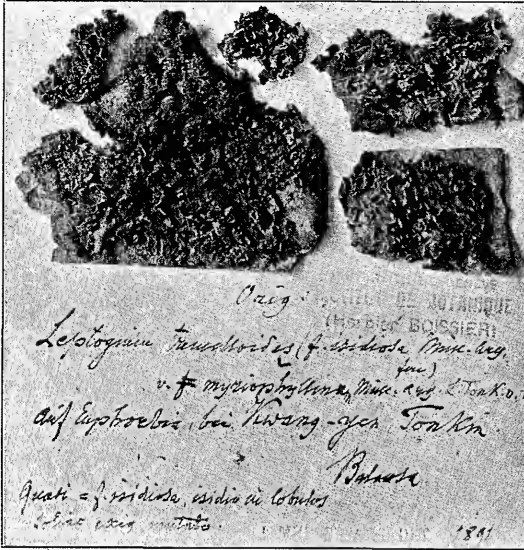 Orig.
INSTITUT DE BOTANIQUE
(Herbier BOISSIER)
Leptogium tremelloides (f. isidiosa, Müll. Arg.
v. myriophyllina, Müll. Arg. L. Tonk. n.
auf Euphorbia, bei Kwang-yen Tonkin
Balansa
Quasi = f. isidiosa, isidia in lobulos
mutatis